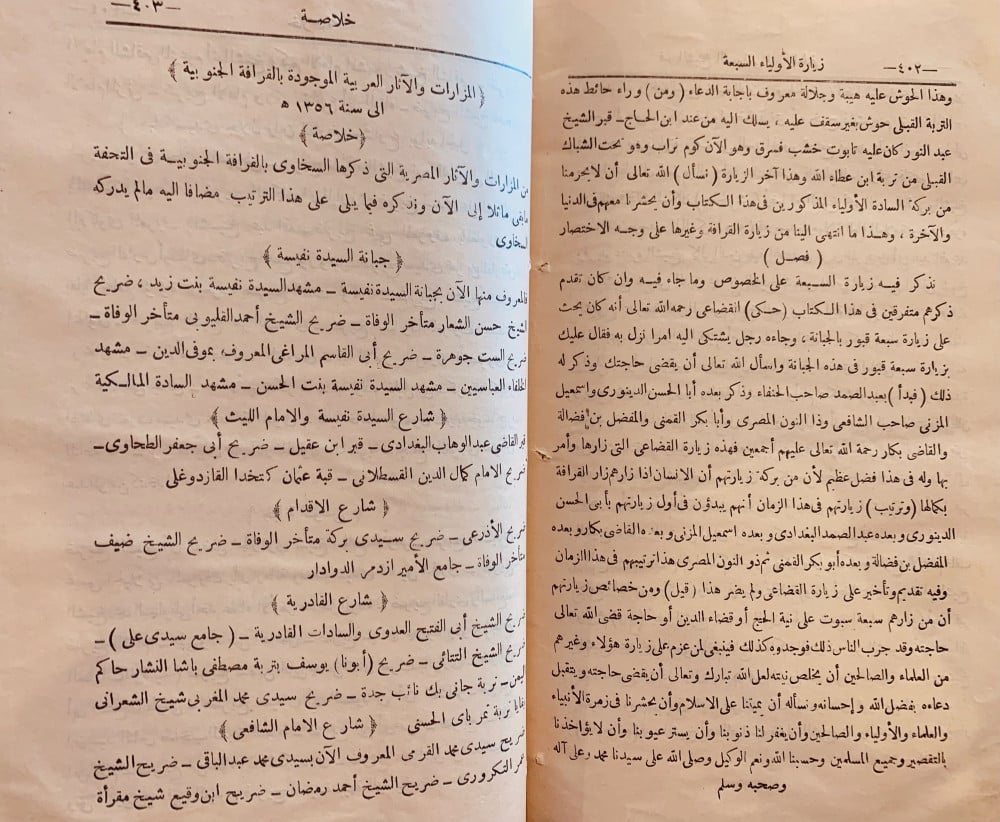 —٤٠٢—
زيارة الأولياء السبعة
وهذا الحوش عليه هيبة وجلالة معروف باجابة الدعاء (ومن) وراء حائط هذه
التربة القبلى حوش بغير سقف عليه ، يسلك اليه من عند ابن الحاج ـ قبر الشيخ
عبد النور كان عليه تابوت خشب فسرق وهو الآن كوم تراب وهو تحت الشباك
القبلى من تربة ابن عطاء الله وهذا آخر الزيارة (نسأل) الله تعالى أن لا يحرمنا
من بركة السادة الأولياء المذكورين فى هذا الكتاب وأن يحشرنا معهم فى الدنيا
والآخرة ، وهذا ما انتهى الينا من زيارة القرافة وغيرها على وجه الاختصار
( فصل )
نذكر فيه زيارة السبعة على الخصوص وما جاء فيه وان كان تقدم
ذكرهم متفرقين فى هذا الكتاب (حكى) القضاعى رحمه الله تعالى أنه كان يحث
على زيارة سبعة قبور بالجبانة ، وجاءه رجل يشتكى اليه امرا نزل به فقال عليك
بزيارة سبعة قبور فى هذه الجبانة واسأل الله تعالى أن يقضى حاجتك وذكر له
ذلك (فبدأ) بعبد الصمد صاحب الحنفاء وذكر بعده أبا الحسن الدينورى واسمعيل
المزنى صاحب الشافعى وذا النون المصرى وأبا بكر القمنى والمفضل بن فضالة
والقاضى بكار رحمة الله تعالى عليهم أجمعين فهذه زيارة القضاعى التى زارها وأمر
بها وله فى هذا فضل عظيم لأن من بركة زيارتهم أن الانسان اذا زارهم زار القرافة
بكالها (وترتيب) زيارتهم فى هذا الزمان أنهم يبدؤن فى أول زيارتهم بأبى الحسن
الدينورى وبعده عبد الصمد البغدادى وبعده اسمعيل المزنى وبعده القاضى بكار وبعده
المفضل بن فضالة وبعده أبو بكر القمنى ثم ذو النون المصرى هذا ترتيبهم فى هذا الزمان
وفيه تقديم وتأخير على زيارة القضاعى ولم يضر هذا (قيل) ومن خصائص زيارتهم
أن من زارهم سبعة سبوت على نية الحج أو قضاء الدين أو حاجة قضى الله تعالى
حاجته وقد جرب الناس ذلك فوجدوه كذلك فينبغى لمن عزم على زيارة هؤلاء وغيرهم
من العلماء والصالحين أن يخلص نيته لعل الله تبارك وتعالى أن يقضى حاجته ويتقبل
دعاءه بفضل الله وإحسانه ونسأله أن يميتنا على الاسلام وأن يحشرنا فى زمرة الأنبياء
والعلماء والأولياء والصالحين وأن يغفر لنا ذنوبنا وأن يستر عيوبنا وأن لا يؤاخذنا
بالتقصير وجميع المسلمين وحسبنا الله ونعم الوكيل وصلى الله على سيدنا محمد وعلى آله
وصحبه وسلم
خلاصة
—٤٠٣—
﴿ المزارات والآثار العربية الموجودة بالقرافة الجنوبية ﴾
الى سنة ١٣٥٦ ه
﴿ خلاصة ﴾
من المزارات والآثار المصرية التى ذكرها السخاوى بالقرافة الجنوبية فى التحفة
ما بقى ماثلا إلى الآن ونذكره فيما يلى على هذا الترتيب مضافا اليه مالم يدركه
السخاوى
﴿ جبانة السيدة نفيسة ﴾
فالمعروف منها الآن بجبانة السيدة نفيسة ـ مشهد السيدة نفيسة بنت زيد ، ضريح
الشيخ حسن الشعار متأخر الوفاة ـ ضريح الشيخ أحمد القليوبى متأخر الوفاة ـ
ضريح الست جوهرة ـ ضريح أبى القاسم المراغى المعروف بموفى الدين ـ مشهد
الخلفاء العباسيين ـ مشهد السيدة نفيسة بنت الحسن ـ مشهد السادة المالكية
﴿ شارع السيدة نفيسة والامام الليث ﴾
قبر القاضى عبد الوهاب البغدادى ـ قبر ابن عقيل ـ ضريح أبى جعفر الطحاوى ـ
ضريح الامام كمال الدين القسطلانى ـ قبة عثمان كتخدا القازدوغلى
﴿ شارع الاقدام ﴾
ضريح الأذرعى ـ ضريح سيدى بركة متأخر الوفاة ـ ضريح الشيخ ضيف
متأخر الوفاة ـ جامع الأمير ازدمر الدوادار
﴿ شارع القادرية ﴾
ضريح الشيخ أبى الفتيح العدوى والسادات القادرية ـ (جامع سيدى على) ـ
ضريح الشيخ التتائى ـ ضريح (أبونا) يوسف بتربة مصطفى باشا النشار حاكم
اليمن ـ تربة جانى بك نائب جدة ـ ضريح سيدى محمد المغربى شيخ الشعرانى
بقايا تربة تمر باى الحسنى ﴿ شارع الامام الشافعى ﴾
ضريح سيدى محمد القرمى المعروف الآن بسيدى محمد عبد الباقى ـ ضريح الشيخ
عمر التكرورى ـ ضريح الشيخ أحمد رمضان ـ ضريح ابن وقيع شيخ مقرأة